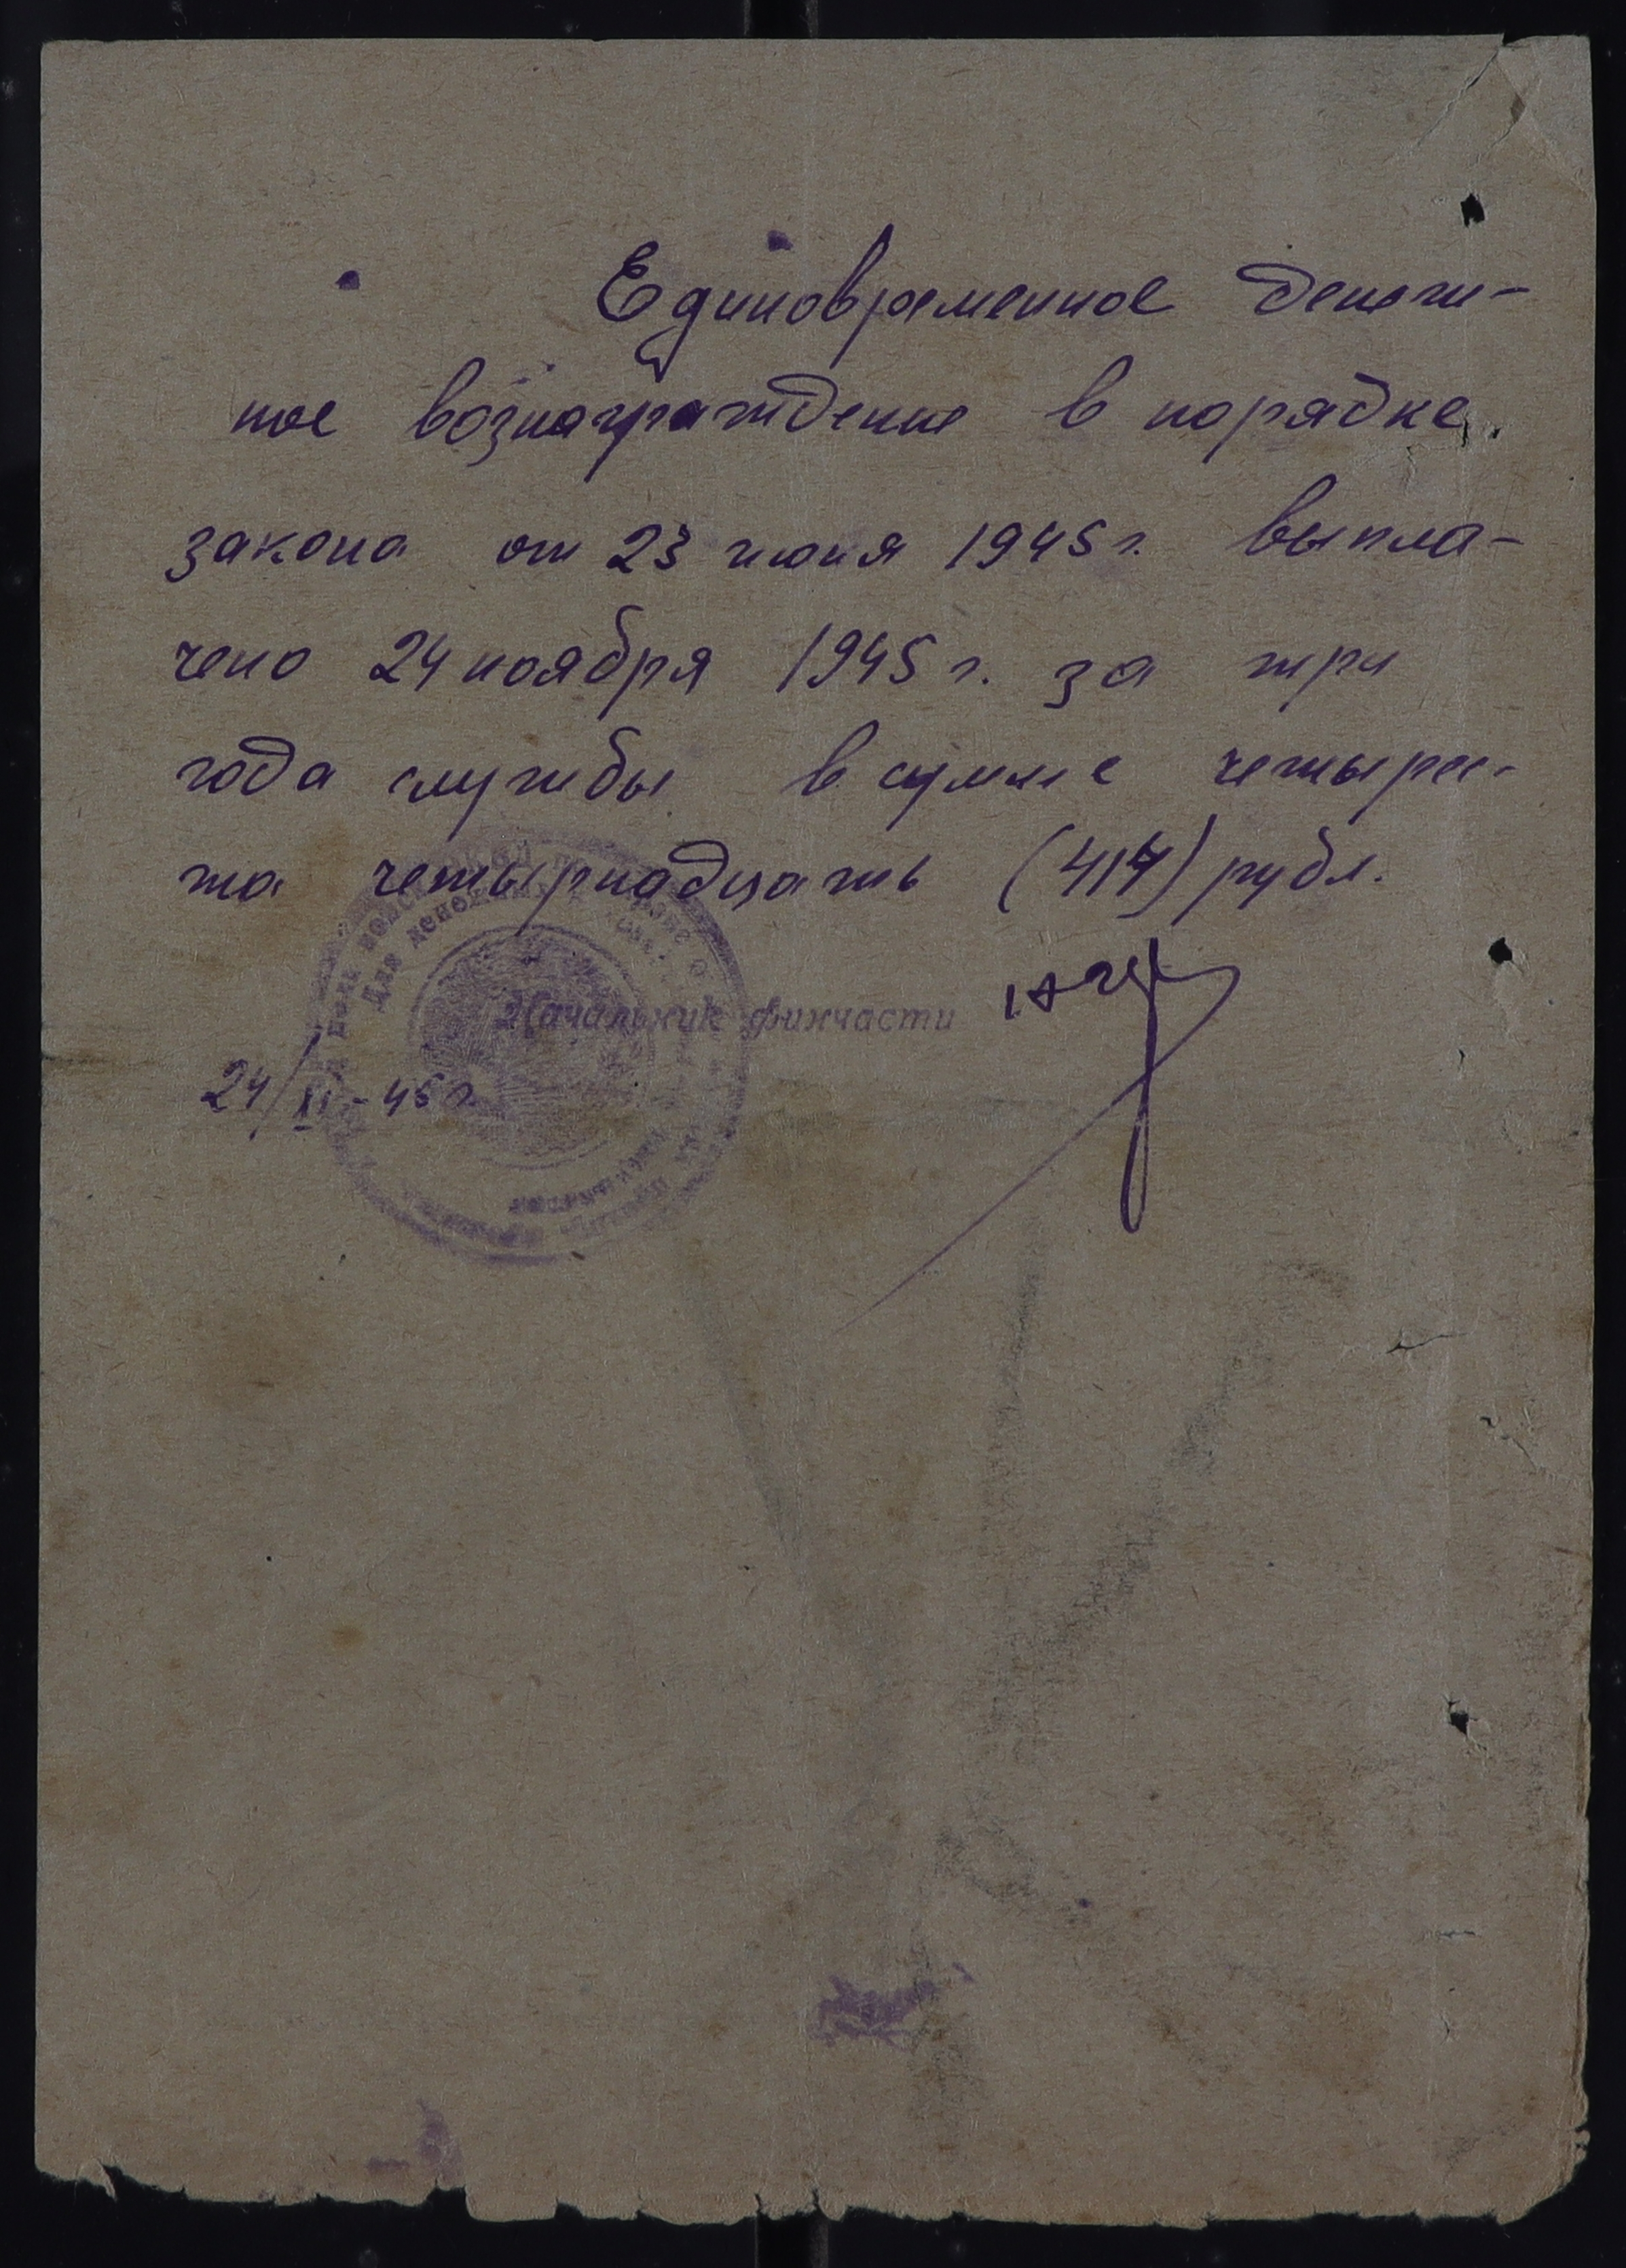 Единовременное денеж-
ное вознаграждение в порядке
закона от 23 июня 1945 г. выпла-
чено 24 ноября 1945 г. за три
года службы в сумме четырес-
та четырнадцать (414) рубл.
Для денежных
Начальник финчасти
24/XI-45 г.